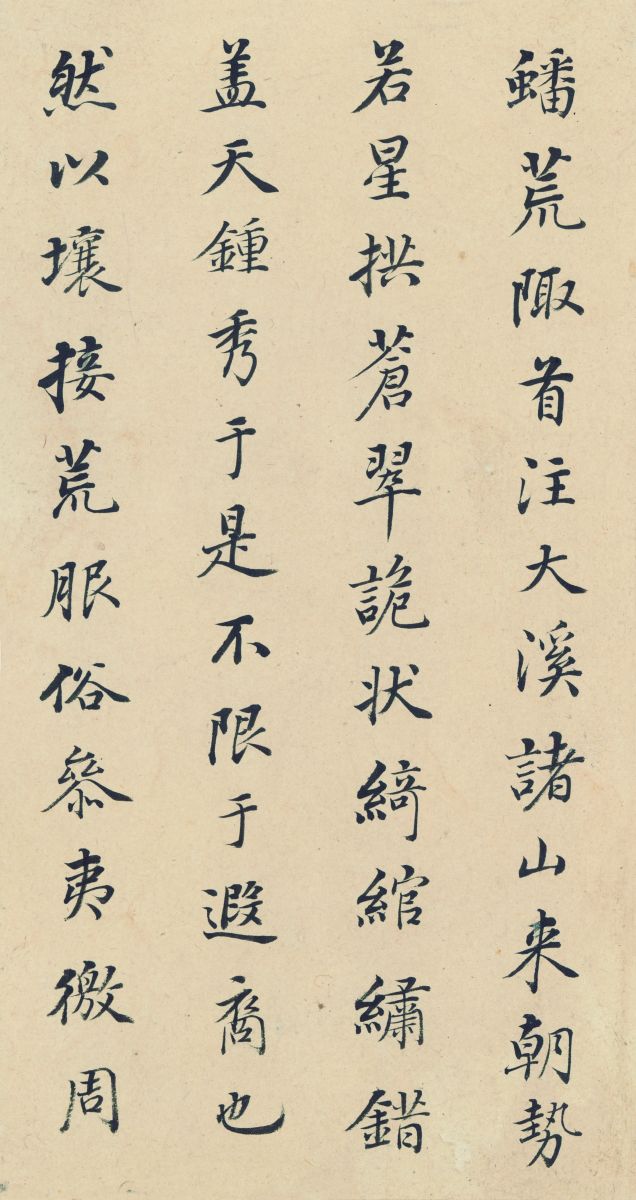 蟠荒陬首注大溪諸山来朝勢
若星拱蒼翠詭状綺綰繡錯
盖天鍾秀于是不限于遐裔也
然以壤接荒服俗叅夷徼周